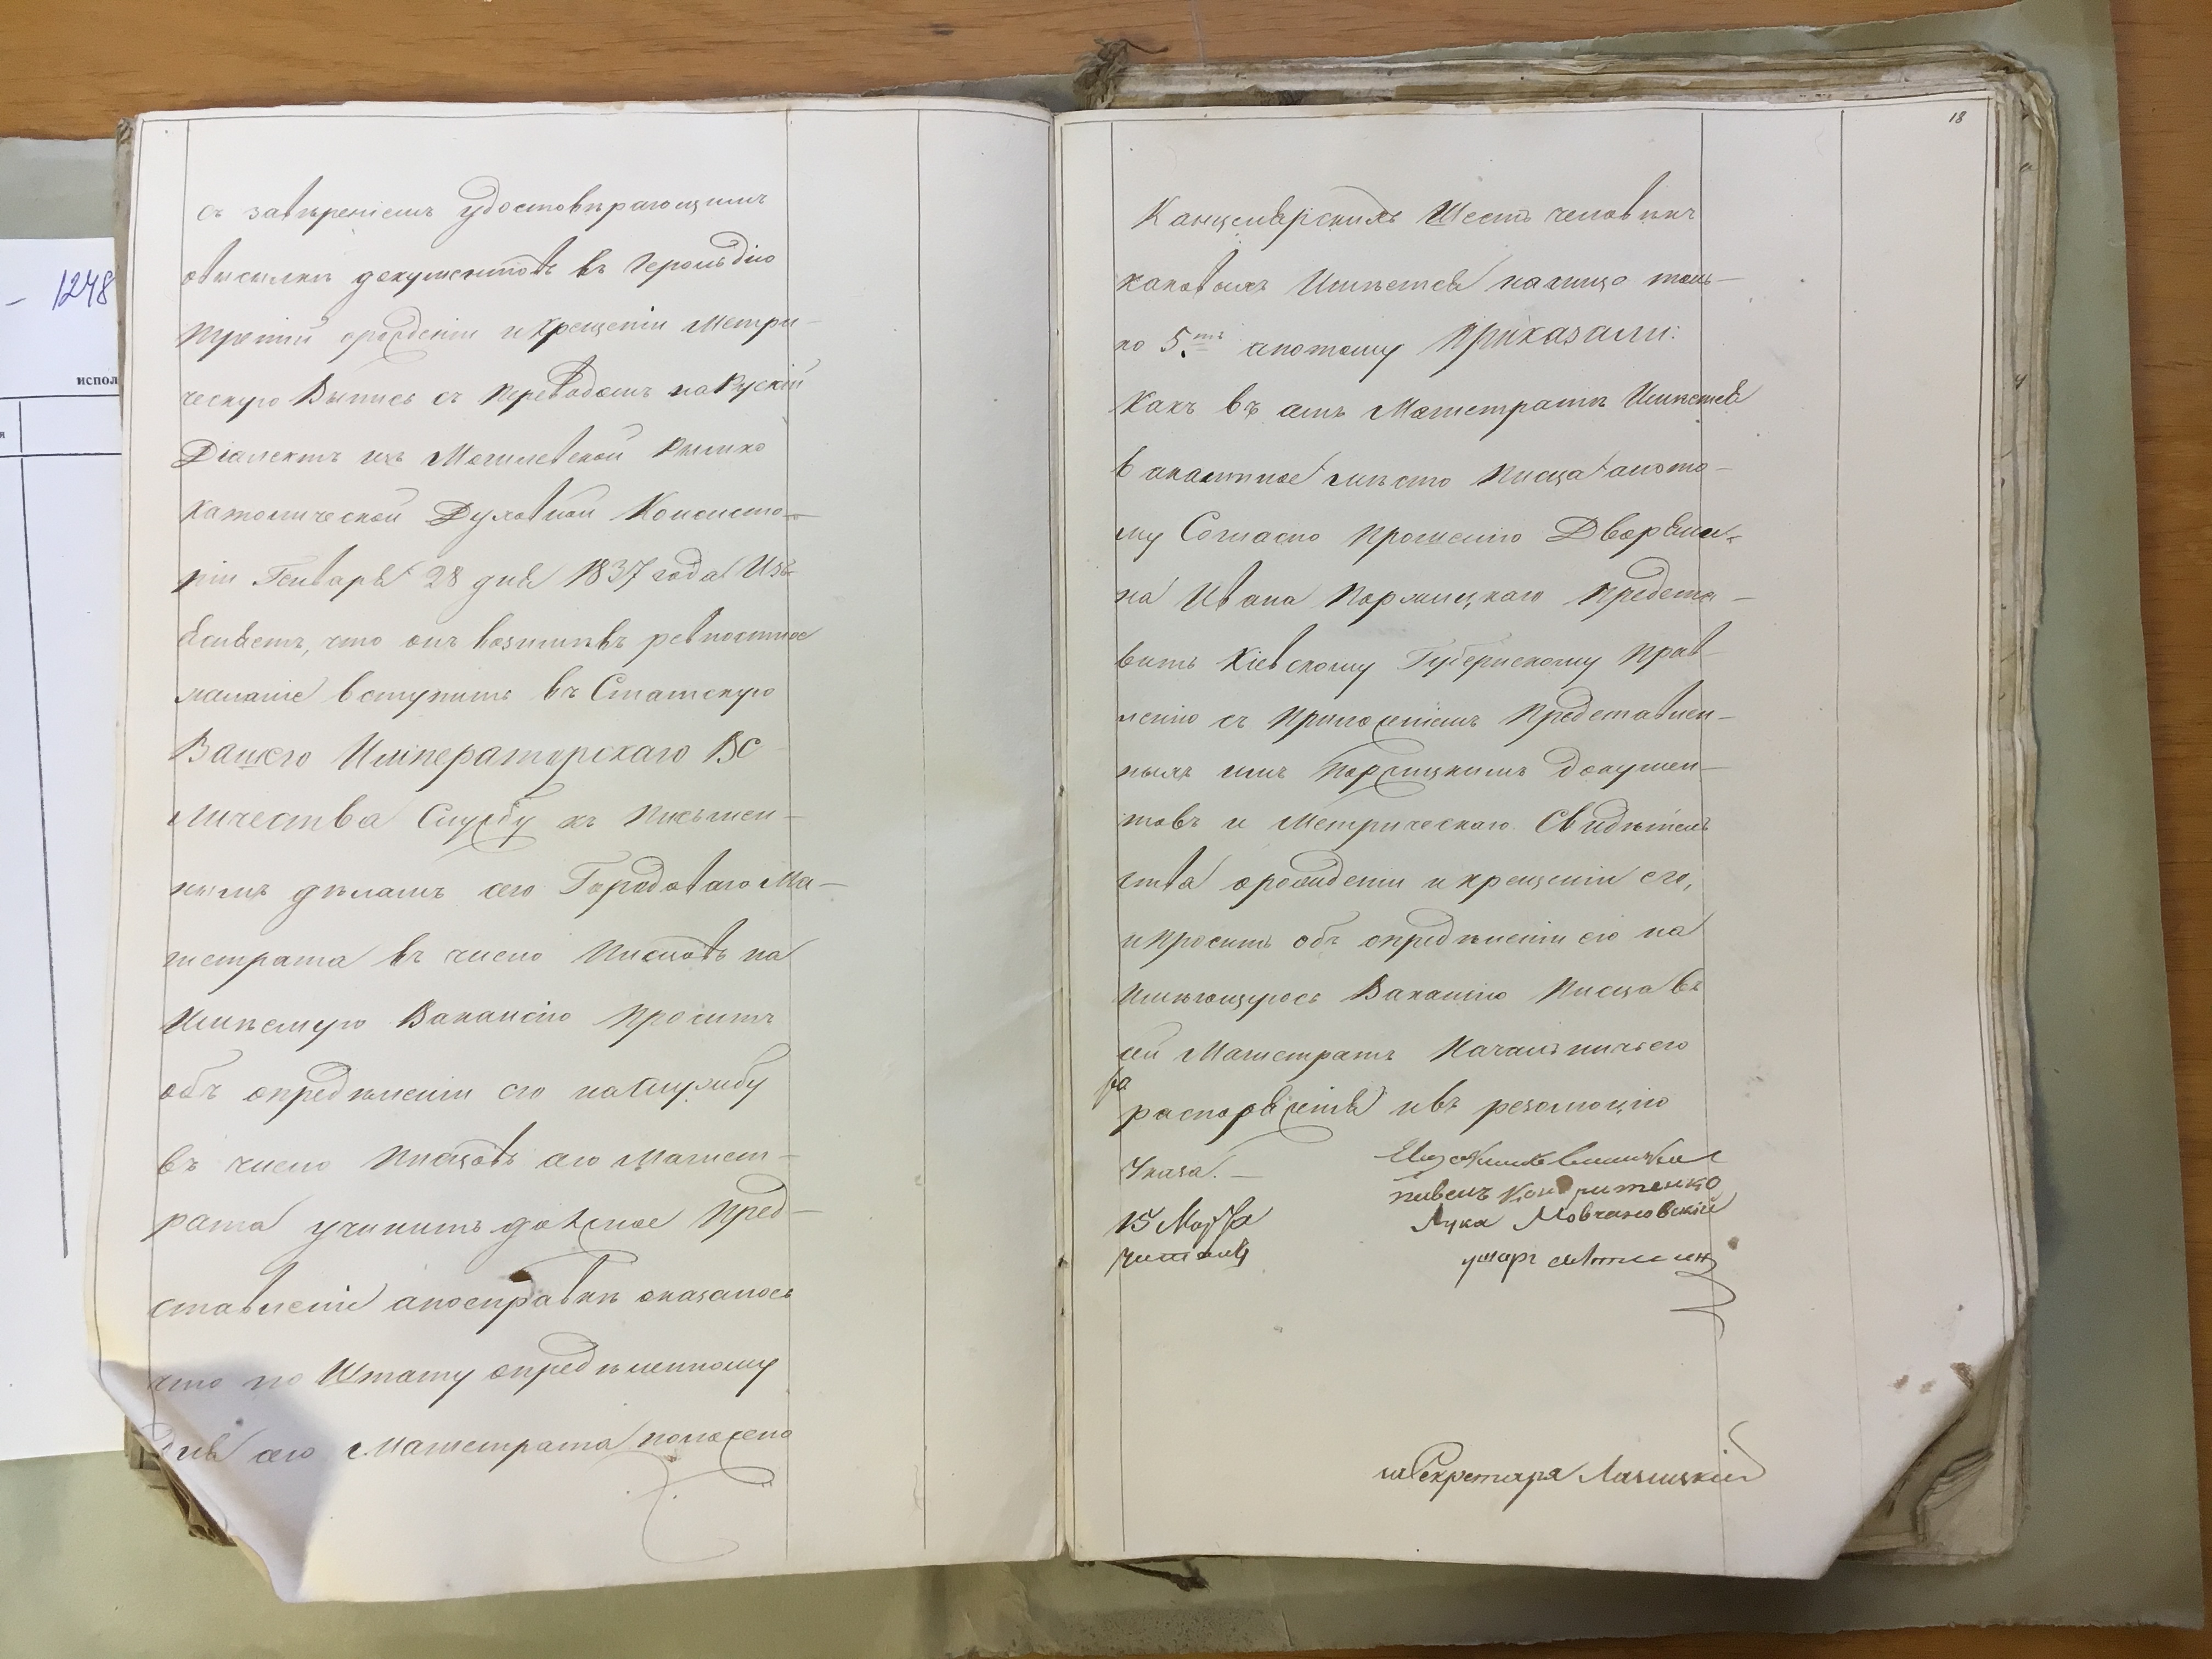 – 1248
испол
съ завѣреніемъ удостовѣрающимъ
отсылки документовъ въ Герольдію
третій орожденіи и крещеніи метри-
ческую Выпись съ переводомъ на Рускій
Діалектъ изъ Могилевской Римско
Католической Духовной Консисто-
ріи Генваря 28 дня 1837 года Изъ-
ясняетъ, что онъ возымѣвъ ревностное
желаніе вступить въ Статскую
Вашего Императорскаго Ве
личества Службу къ Письмен-
нымъ дѣламъ сего Городоваго Ма-
гистрата въ число Писцовъ на
Имѣемую Вакансію проситъ
объ опредѣленіи его на службу
въ число Писцовъ сего Магист-
рата учинить должное Пред-
ставленіе апосправкѣ оказалось
что по Штату опредѣленному
для сего Магистрата положено
18
Канцелярскихъ Шесть человѣкъ
каковыхъ Имѣется налицо толь-
ко 5.ть апотому Приказали:
Какъ въ семъ Магистратѣ Имѣется
вакантное мѣсто Писца апото-
му Согласно прошенію Дворяни-
на Ивана представить
Кіевскому Губернскому Прав-
ленію съ Приложеніемъ Представлен-
ныхъ имъ докумен-
товъ и Метрическаго Свидѣтель
ства орождении и крещеніи его,
и просить объ опредѣленіи его на
Имѣющуюся Вакансію Писца въ
сей Магистратъ Начальничьего
распоряженія ивъ резолюцію
Указа. –
Кондратенко
Лука Мовчановскій
15 Мая
читалъ
Секретаря